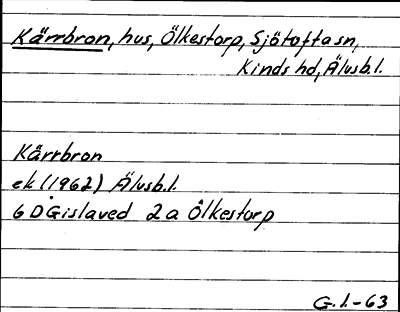 Kärrbron, hus, Ölkestorp, Sjötofta sn,
Kinds hd, Älvsb.l.
Kärrbron
ek (1962) Älvsb.l.
6 D Gislaved 2a Ölkestorp
G.l.-63